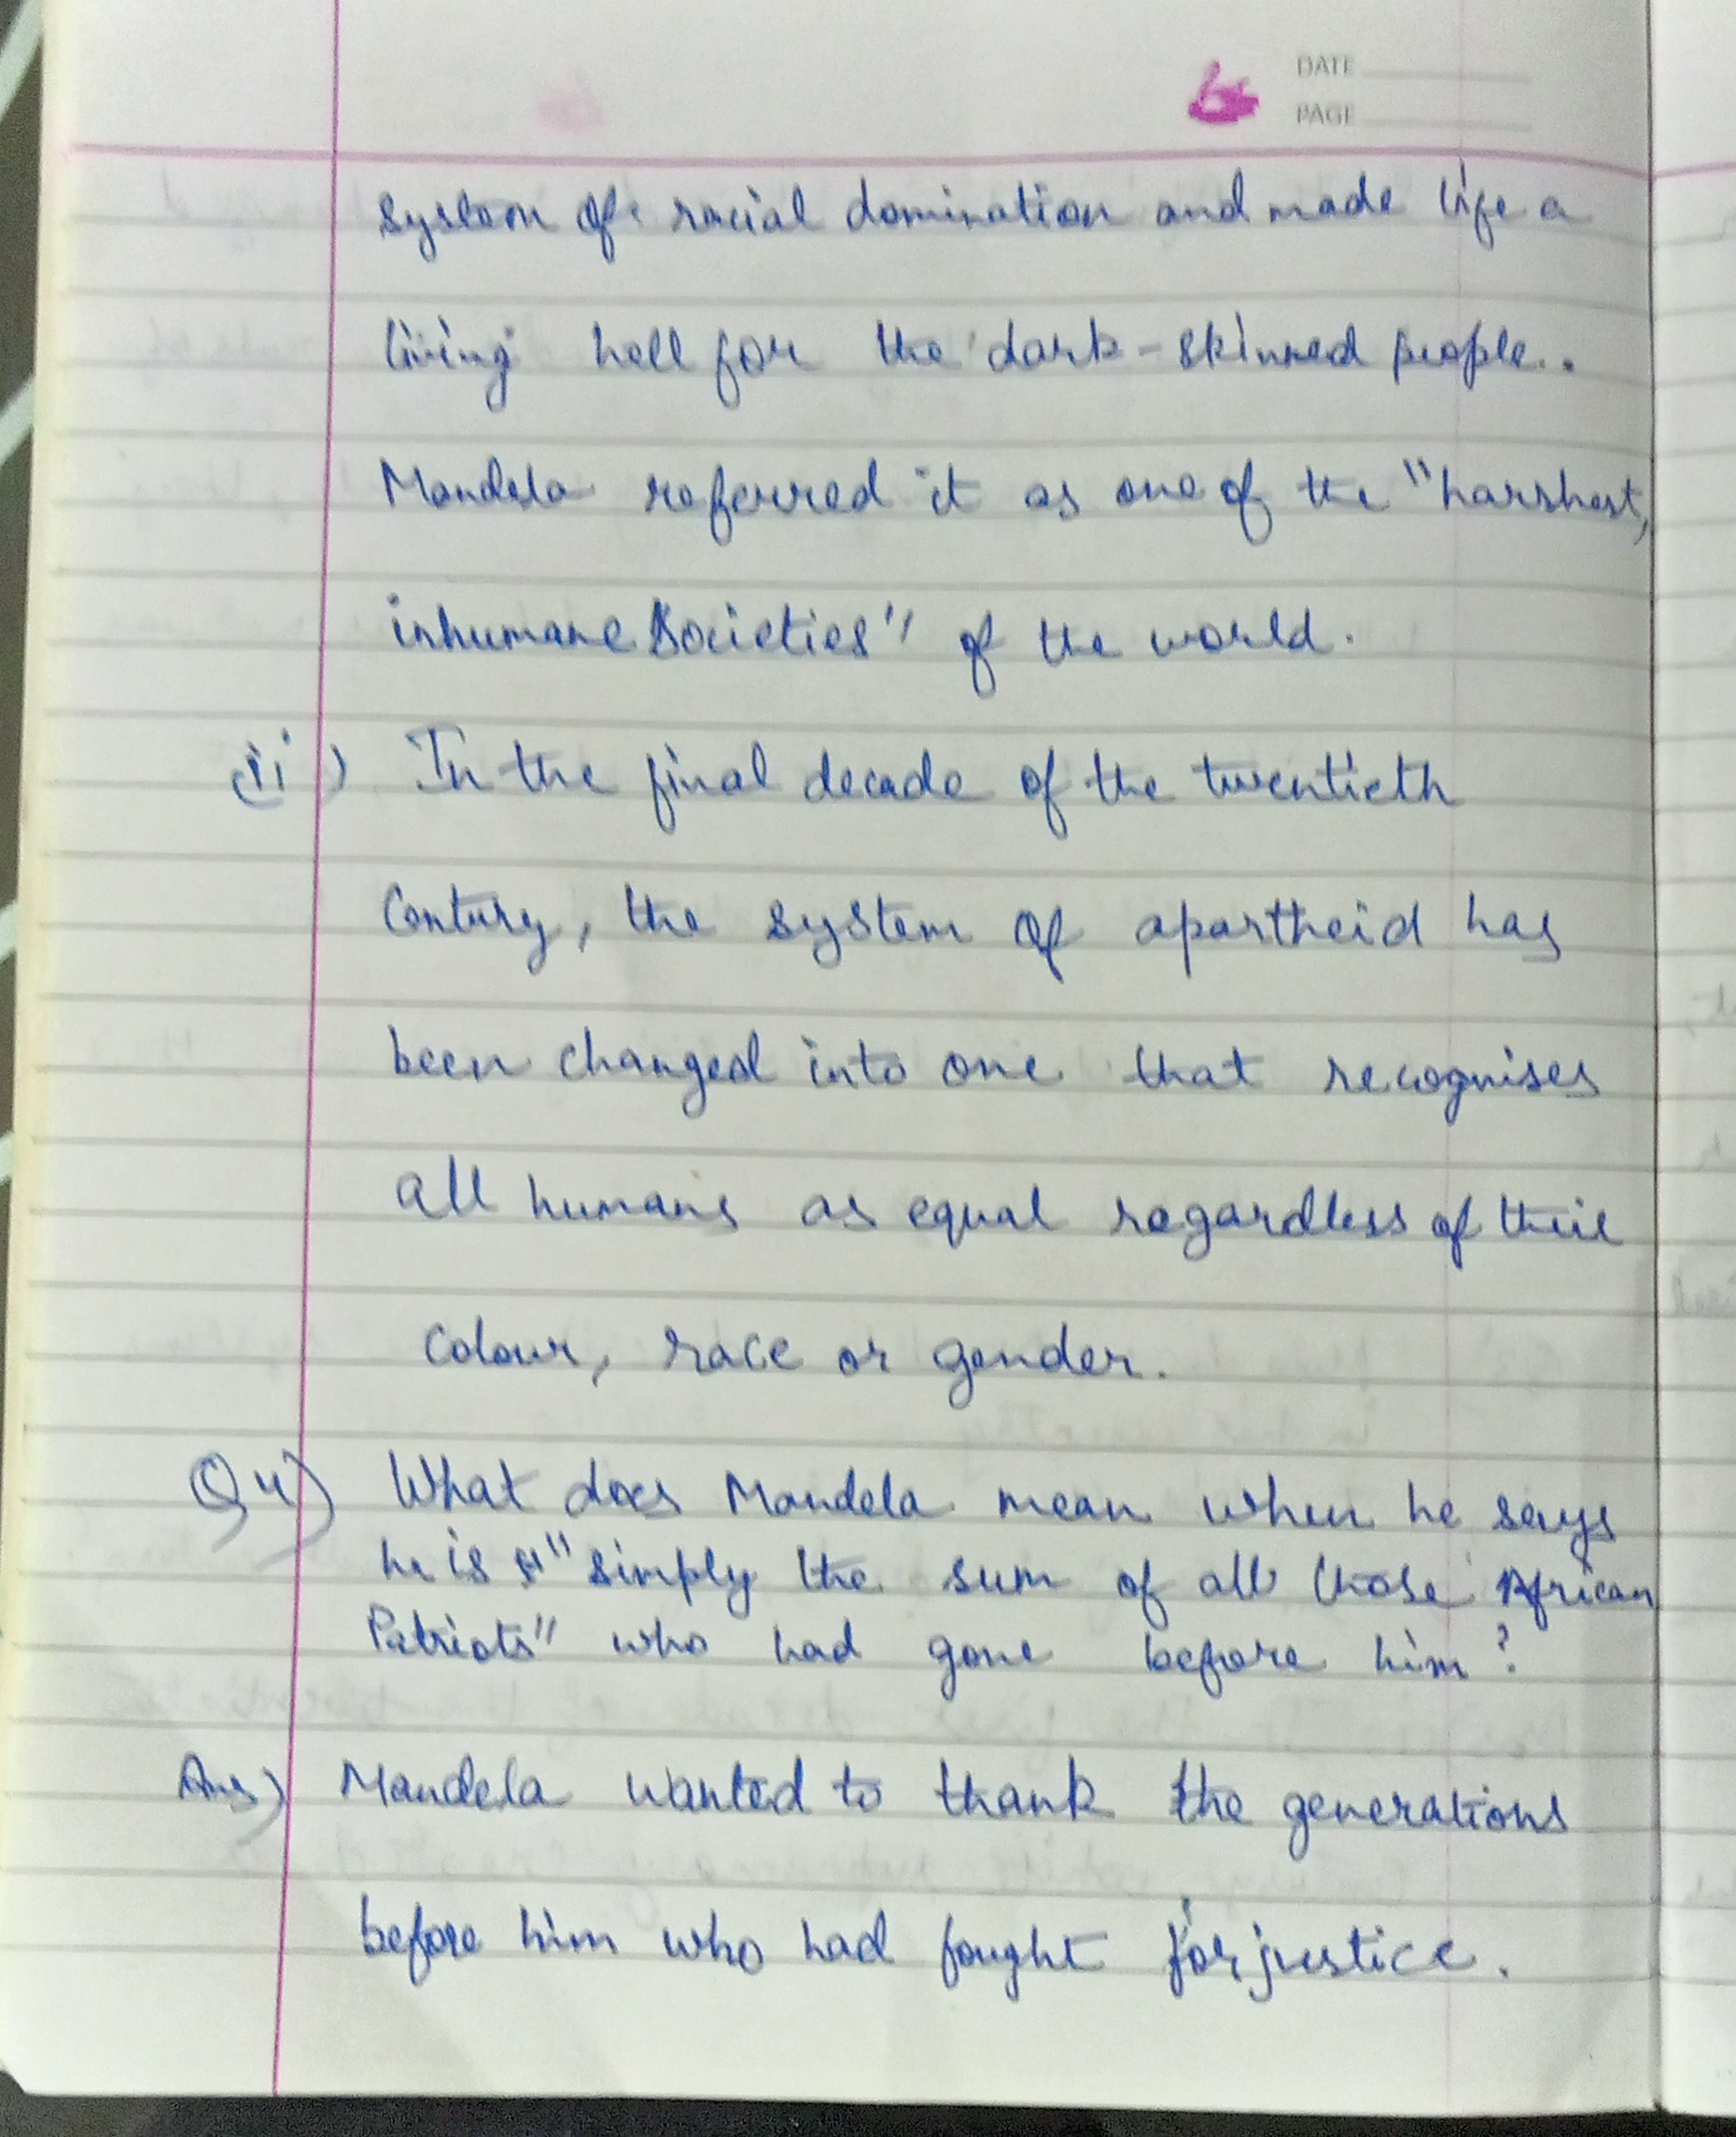 DATE
PAGE
system of racial domination and made life a
living hell for the dark-skinned people..
Mandela referred it as one of the "harshest,
inhumane societies" of the world.
(ii) In the final decade of the twentieth
Century, the system of apartheid has
been changed into one that recognises
all humans as equal regardless of their
colour, race or gender.
Q4) What does Mandela mean when he says
he is "simply the sum of all those African
Patriots" who had gone before him?
Ans) Mandela wanted to thank the generations
before him who had fought for justice.